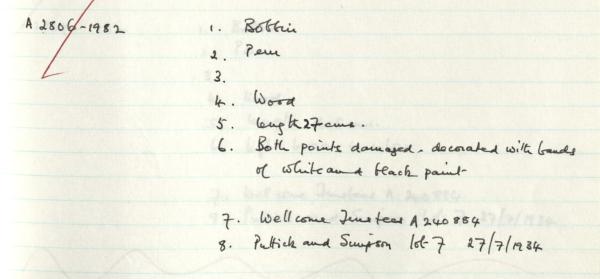 A 2806-1982
1. Bobbin
2. Peru
3.
4. Wood
5. length 27 cms.
6. Both points damaged - decorated with bands
of white and black paint -
7. Wellcome Trustees A 240884
8. Puttick and Simpson lot 7 27/7/1934